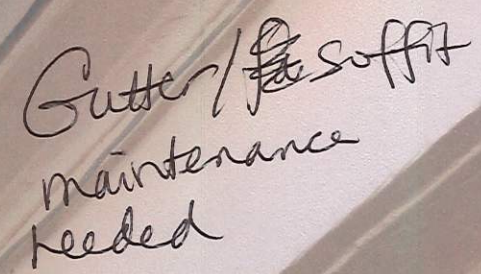 Gutter/ soffit
maintenance
needed